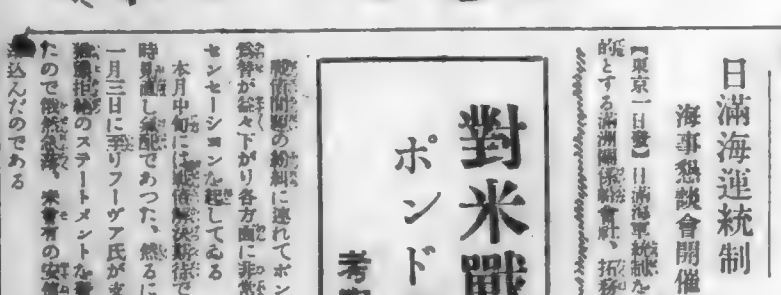 日滿海運統制
海事懇談會開催
【東京一日發】日滿海運統制を
的とする滿洲關係會社、拓務
對米戰
ポンド
考
戰債問題の紛糾に連れてポン
爲替が益々下がり各方面に非常
センセーションを起してゐる
本月中旬には戰債解決期待で
時見直し氣配であつた、然るに
一月三日に至りフーヴア氏が支
拂猶豫拒絶のステートメントを
たので俄然急落、未曾有の安値
込んだのである